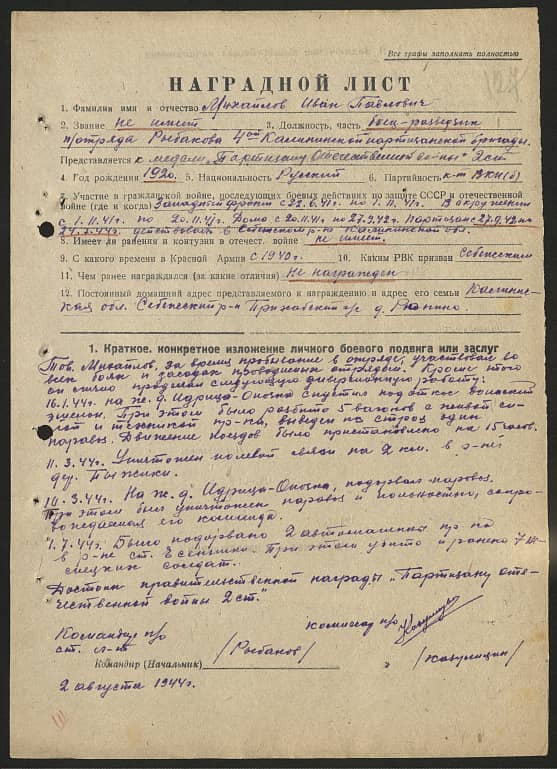 Все графы заполнять полностью
НАГРАДНОЙ ЛИСТ
1. Фамилия имя и отчество Михайлов Иван Павлович
2. Звание не имеет 3. Должность, часть боец-разведчик
п/отряда Рыбакова 4ой Калининской партизанской бригады.
Представляется к медали „Партизану Отечественной войны" 2 ст
4. Год рождения 1920. 5. Национальность Русский 6. Партийность к-т ВКП(б)
7. Участие в гражданской войне, последующих боевых действиях по защите СССР и отечественной
войне (где и когда) Западный фронт с 22.6.41г по 1.11.41г. В окружении
с 1.11.41г. по 20.11.41г. Дома с 20.11.41г. по 27.9.42г. Партизан с 27.9.42г по
действовал в Себежском р-не Калининской обл.
8. Имеет ли ранения и контузии в отечест. войне не имеет.
9. С какого времени в Красной Армии с 1940г. 10. Каким РВК призван Себежским
11. Чем ранее награждался (за какие отличия) Не награжден
12. Постоянный домашний адрес представляемого к награждению и адрес его семьи Калинин-
ская обл. Себежский р-н д.
1. Краткое, конкретное изложение личного боевого подвига или заслуг
Тов. Михайлов, за время пребывания в отряде, участвовал во
всех боях и засадах проводимых отрядом. Кроме этого
он лично проделал следующую диверсионную работу:
16.1.44г. на ж.д. Идрица-Опочка спустил под откос воинский
эшелон. При этом было разбито 5 вагонов с живой си-
лой и техникой пр-ка, выведен из строя один
паровоз. Движение поездов было приостановлено на 15 часов.
11.3.44г. Уничтожен полевой связи на 2 км. в р-не
д.
10.3.44г. На ж.д. Идрица-Опочка, подорвал паровоз.
При этом был уничтожен паровоз и полностью, сопро-
вождающая его команда.
1.7.44г. Было подорвано 2 автомашины пр-ка
в р-не ст. При этом убито и ранено 7 не-
мецких солдат.
Достоин правительственной награды „Партизану оте-
чественной войны 2 ст."
Командир п/о
ст. л-т /Рыбаков/
комиссар п/о
Командир (Начальник)
2 августа 1944г.